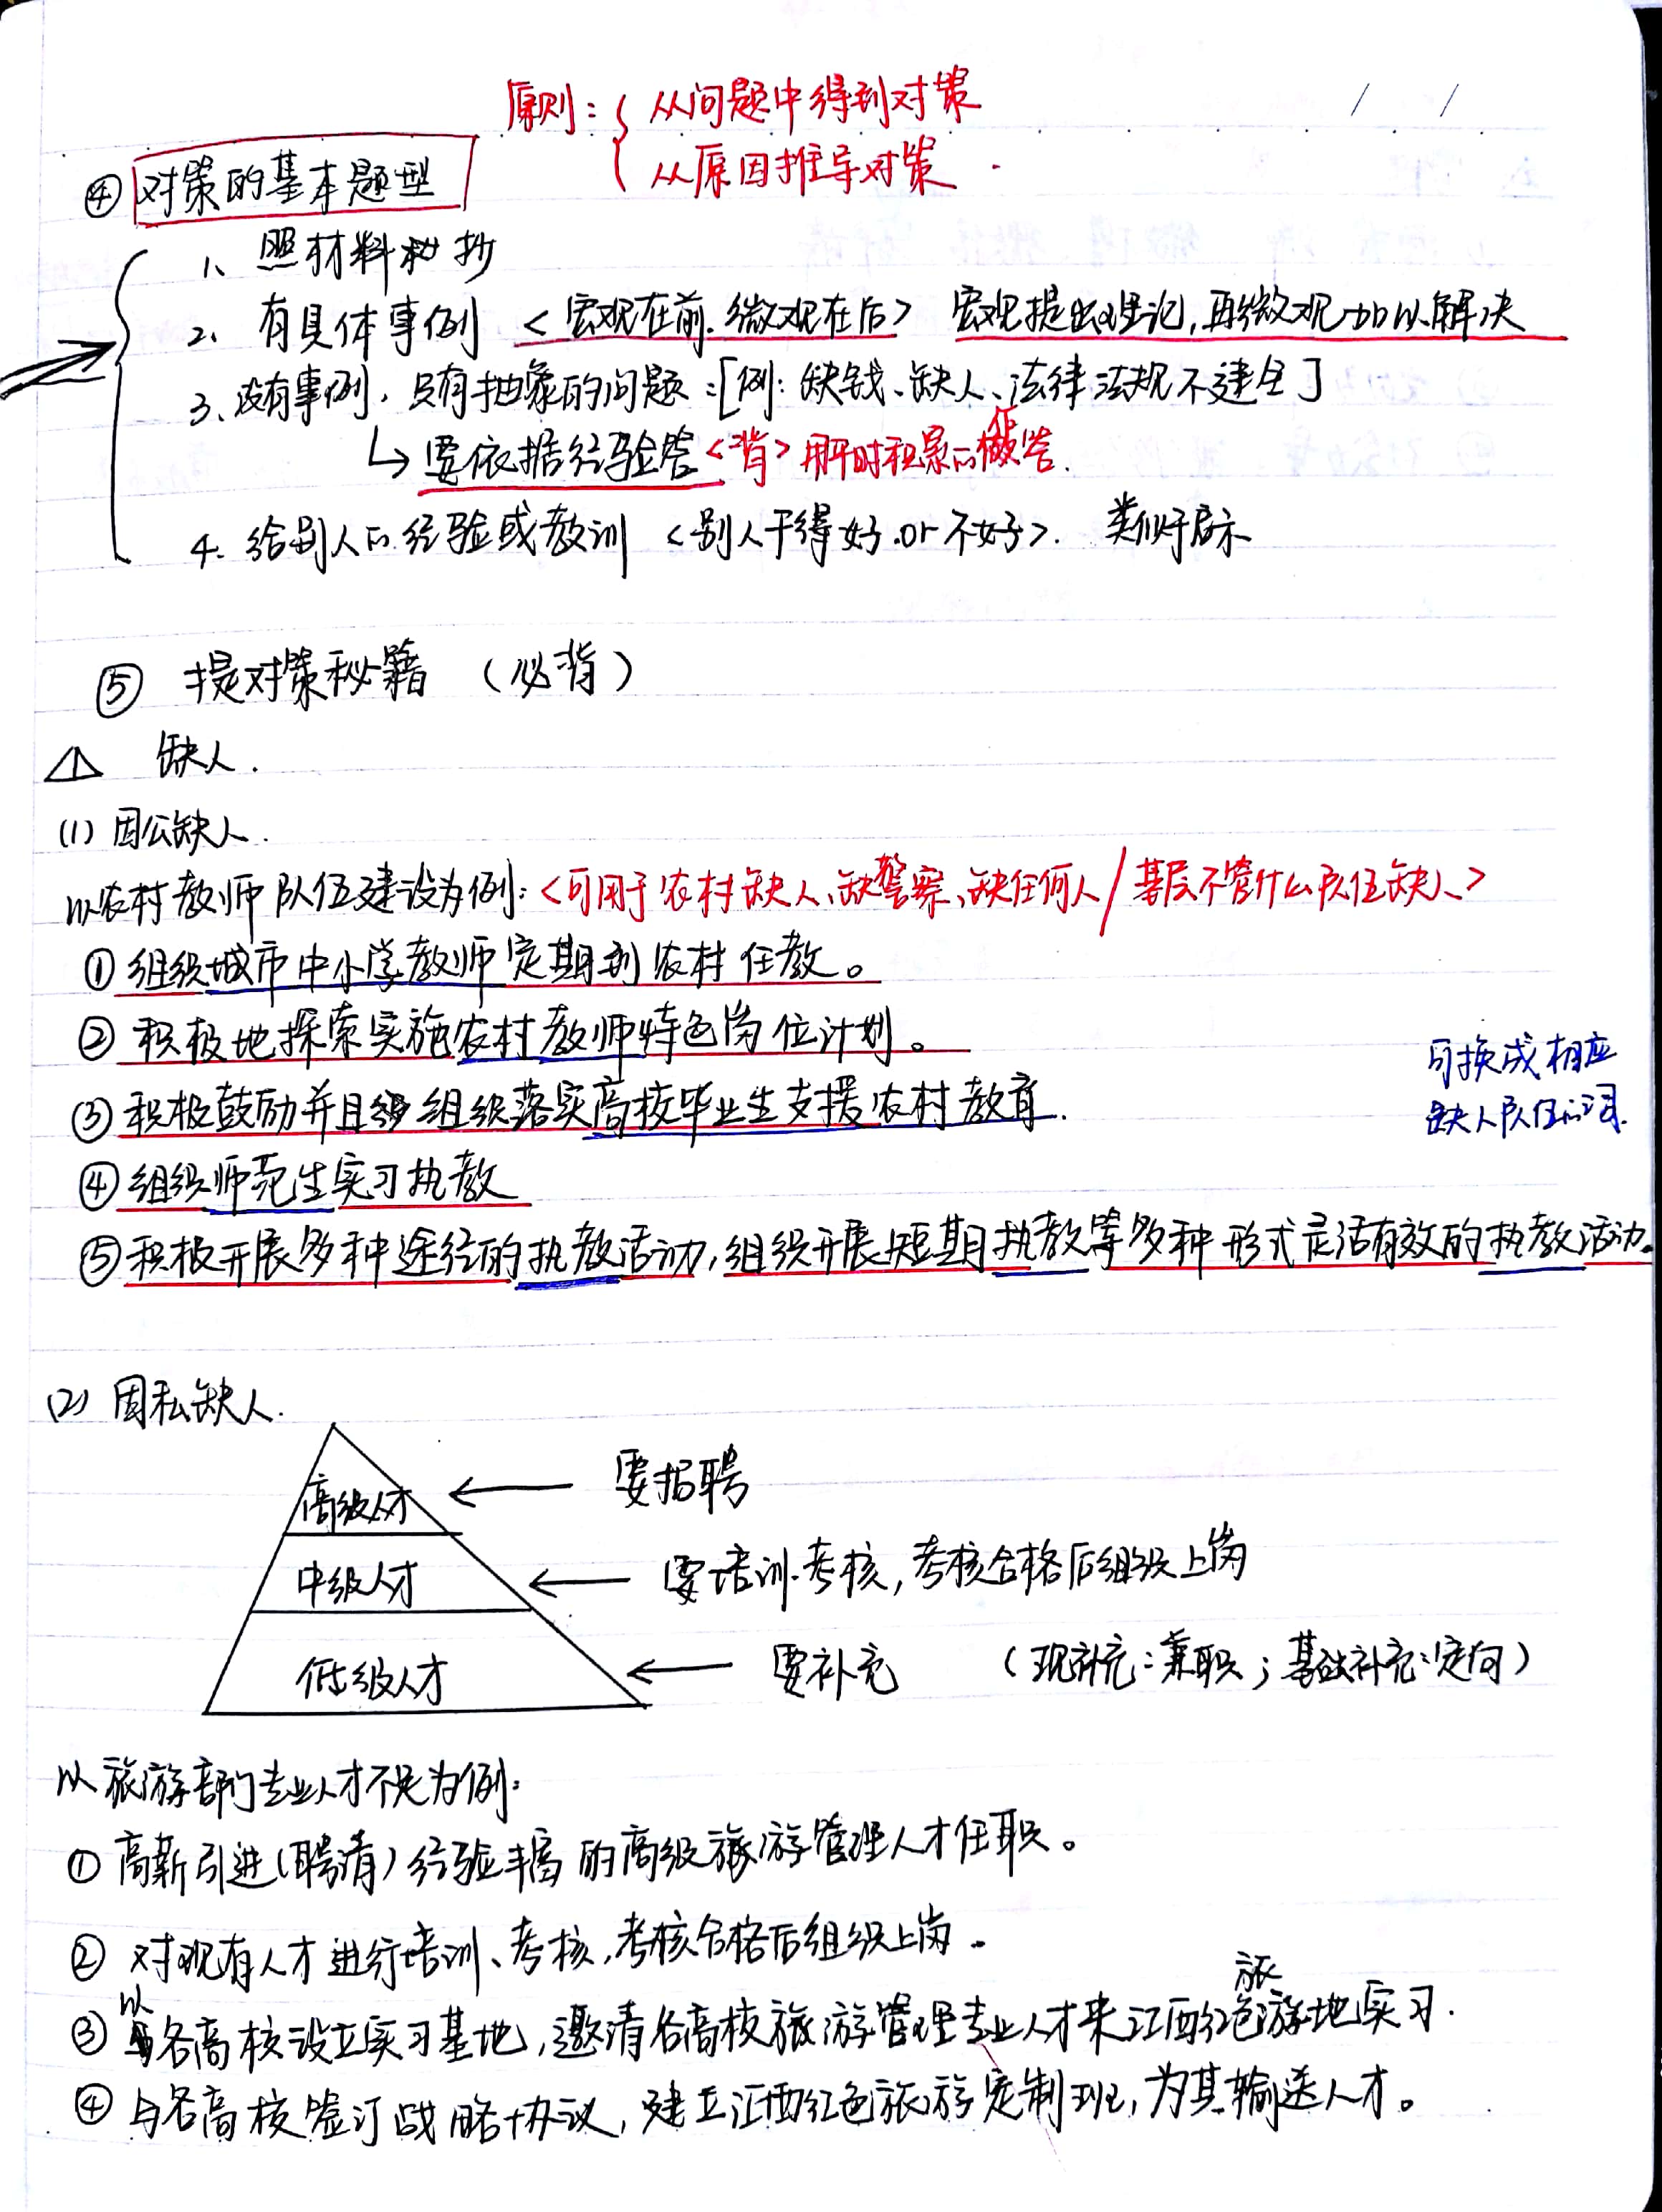 原则：{ 从问题中得到对策
从原因推导对策.
④ 对策的基本题型
1、照材料抄
2、有具体事例 <宏观在前.微观在后> 宏观提出理论,再微观加以解决
3、没有事例，只有抽象的问题:[例: 缺钱、缺人、法律法规不建全]
↳ 要依据经验答<背> 用平时积累的做答.
4. 给别人的经验或教训 <别人干得好.or 不好>. 类似于启示
⑤ 提对策秘籍 (必背)
△ 缺人.
(1) 因公缺人.
以农村教师队伍建设为例: <可用于农村缺人、缺警察、缺任何人/基层不管什么队伍缺人>
① 组织城市中小学教师定期到农村任教。
② 积极地探索实施农村教师特色岗位计划。
可换成相应
③ 积极鼓励并且组织落实高校毕业生支援农村教育.
缺人队伍的词.
④ 组织师范生实习执教
⑤ 积极开展多种途径的执教活动,组织开展短期执教等多种形式灵活有效的执教活动。
(2) 因私缺人.
高级人才 ← 要招聘
中级人才 ← 要培训.考核,考核合格后组织上岗
低级人才 ← 要补充 (现补充:兼职;基础补充:定向)
以旅游部门专业人才不足为例:
① 高薪引进(聘请)经验丰富的高级旅游管理人才任职。
② 对现有人才进行培训、考核,考核合格后组织上岗。
③ 以各高校设立实习基地,邀请各高校旅游管理专业人才来江西红色旅游地实习.
④ 与各高校签订战略协议,建立江西红色旅游定制班,为其输送人才。